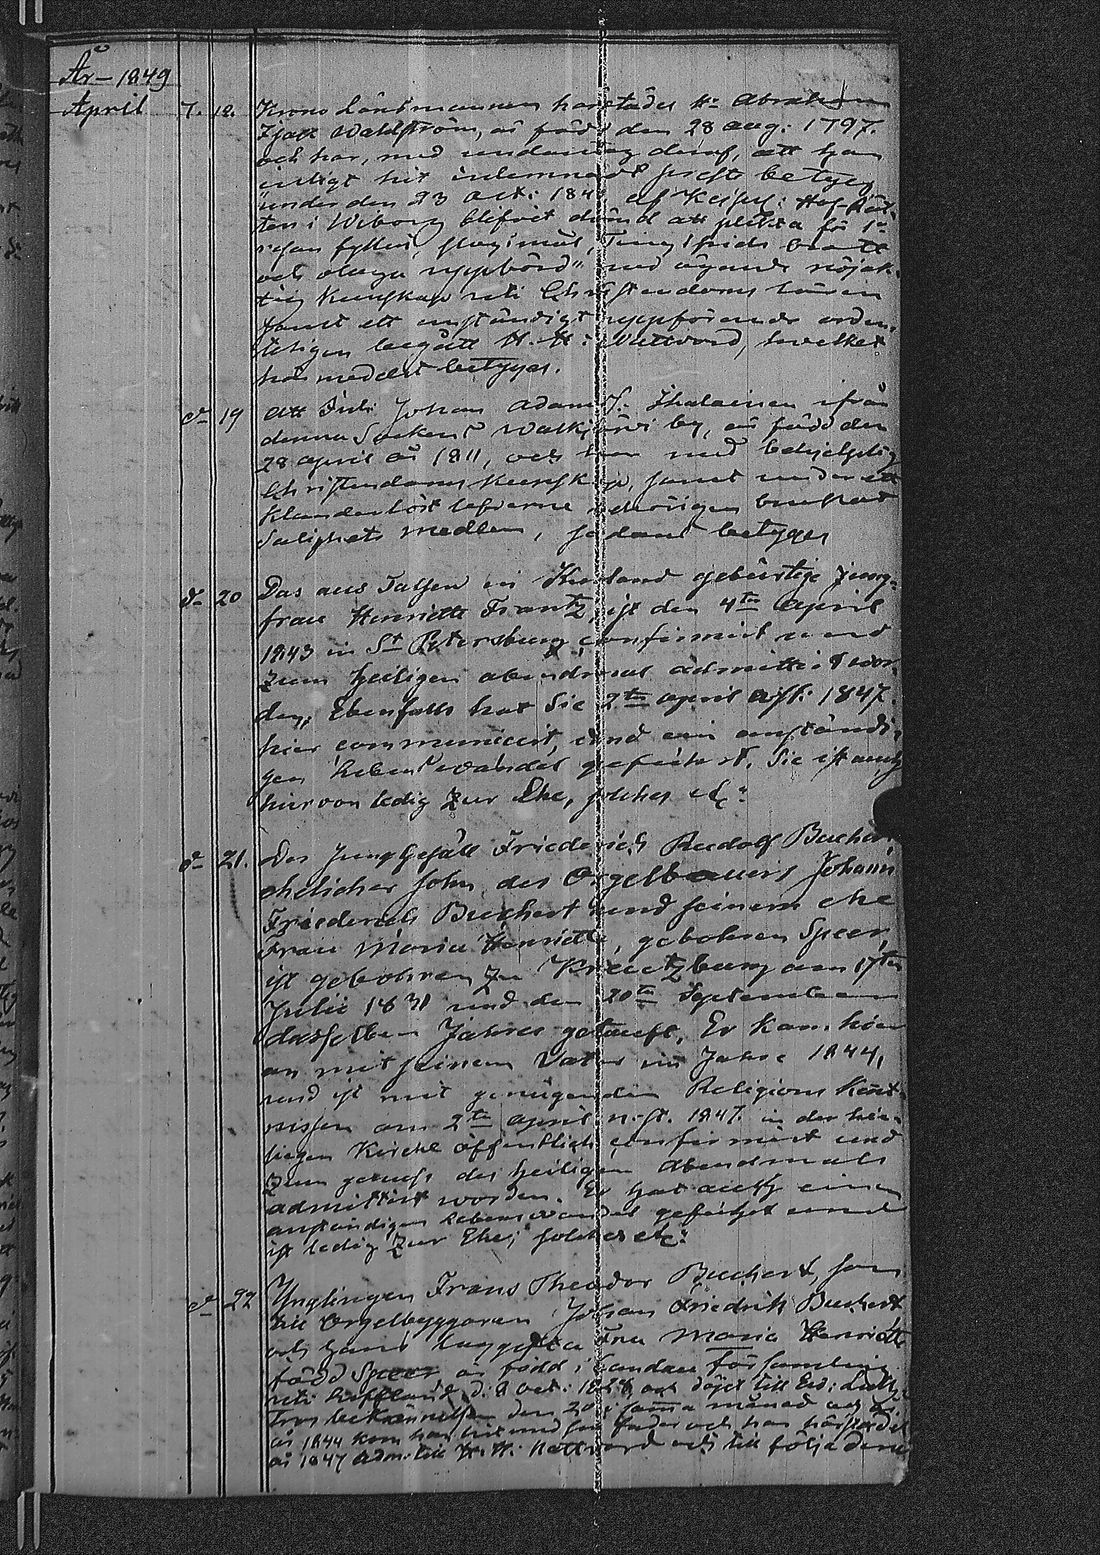 År 1849
April 7. 18. Krono Länsmannen härstädes Hr Abraham
Isak Wahlström, är född den 28 Aug: 1797.
och har, med undantag deraf, att han
enligt hit inlemnadt prest betyg
under den 23 Oct: 184 af Kejserl: Hof Rät-
ten i Wiborg blifvit dömd att plikta för 1sta
resan fylleri, slagsmål, Tingsfrids brott
och olaga uppbörd" med ägande nöjak-
tig kunskap uti Christendoms läran
samt ett anständigt uppförande orden-
teligen begått H. H: Nattvard, hvilket
härmedelst betygas.
do 19 Att Inh: Johan Adams S: Ihalainen ifrån
denna Sockens Walkjärvi by, är född den
28 April år 1811, och har med behjelplig
Christendoms kunskap, samt under ett
klanderlöst lefverne behörigen brukat
Salighets medlen, sådant betygas
do 20 Das aus Talsen in Kurland gebürtige Jung-
frau Henriette Frantz, ist den 4ten April
1843 in St Petersburg confirmirt und
zum heiligen abendmal admittirt wor
den, Ebenfalls hat Sie 2ten April 1847.
hier communicirt, und ein anständi-
gen Lebenswandel geführt. Sie ist auch
hiervon ledig zur Ehe, solches etc:
do 21. Der Jung Gesäll Friederich Rudolf Buchert
ehelicher sohn des Orgelbauers Johann
Friederich Buchert und seinem ehe
Frau Maria Henriette, gebohren Speer,
ist gebohren zu Kreutzburg am 17ten
Julii 1831 und den 20ten September
dasselben Jahres getauft, Er kam hier
an mit seinem Vater im Jahre 1844,
und ist mit genügenden Religions Kent-
nissen am 2ten April n. st. 1847. in der hie-
sigen Kirche öffentlich confirmirt und
zum genuss des heiligen Abendmals
admittirt worden. Er hat auch einen
anständigen Lebenswandel geführt und
ist ledig zur Ehe; solches etc:
do 22 Ynglingen Frans Theodor Buchert, son
till Orgelbyggaren Johan Friedrich Buchert
och hans hustru Fru Maria Henriette
född Speer är född i Candau Församling
uti d. 8 Oct: 1828 och döpt till Ev: Luth:
Tros bekännelsen den 20 i samma månad och
år 1844 kom han hit med sin fader och har härstädes
år 1847 adm: till H. H: Nattvard och till följe deraf